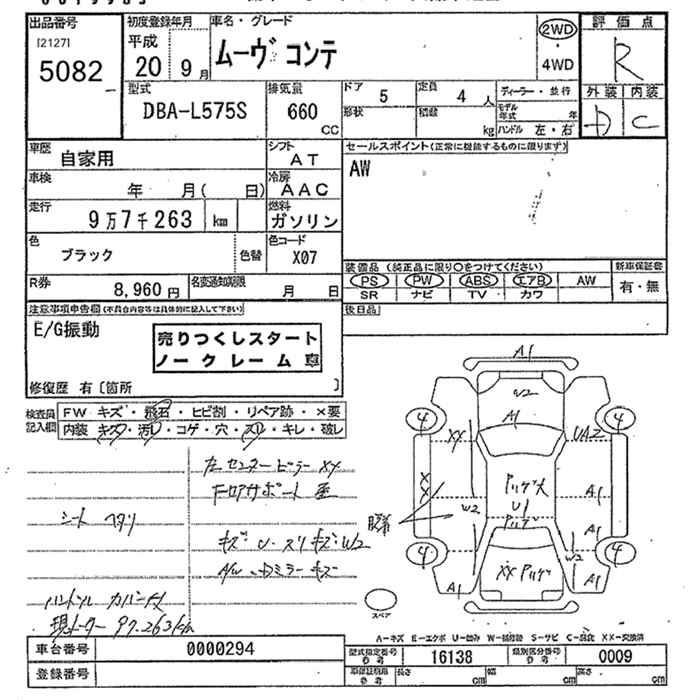 出品番号
[2127]
5082
初度登録年月
平成
20 9月
車名・グレード
ムーヴ コンテ
2WD
4WD
評価点
R
外装 内装
D C
型式
DBA-L575S
排気量
660
CC
ドア 5
定員 4 人
形状
積載 kg
ディーラー・並行
モデル年式 年
ハンドル 左・右
車歴
自家用
シフト
AT
車検
年 月( 日)
冷房
AAC
走行
9万7千263 km
燃料
ガソリン
色
ブラック
色替
色コード
X07
R券
8,960円
名変通知期限
月 日
セールスポイント(正常に機能するものに限ります)
AW
装備品 (純正品に限り○をつけてください)
PS PW ABS エアB AW
SR ナビ TV カワ
新車保証書
有・無
後日品
注意事項申告欄(不具合内容等は具体的に記入して下さい)
E/G振動
売りつくしスタート
ノークレーム 車
修復歴 有〔箇所 〕
検査員記入欄
FW キズ・飛石・ヒビ割・リペア跡・×要
内装 キズ・汚レ・コゲ・穴・スレ・キレ・破レ
左センターピラー XX
シート ヘタリ
A/W ドアミラー キズ
ハンドル カバー
現メーター 97,263km
A1
W2
A1
4
4
XX
UA2
XX
W2
U1
A1
A1
W2
4
4
A1
XX
A1
スペア
A-キズ E-エクボ U-凹み W-補修跡 S-サビ C-腐蝕 XX-交換済
車台番号
0000294
登録番号
型式指定番号
参考
16138
類別区分番号
参考
0009
車検証寸法
参考
長さ cm
幅 cm
高さ cm